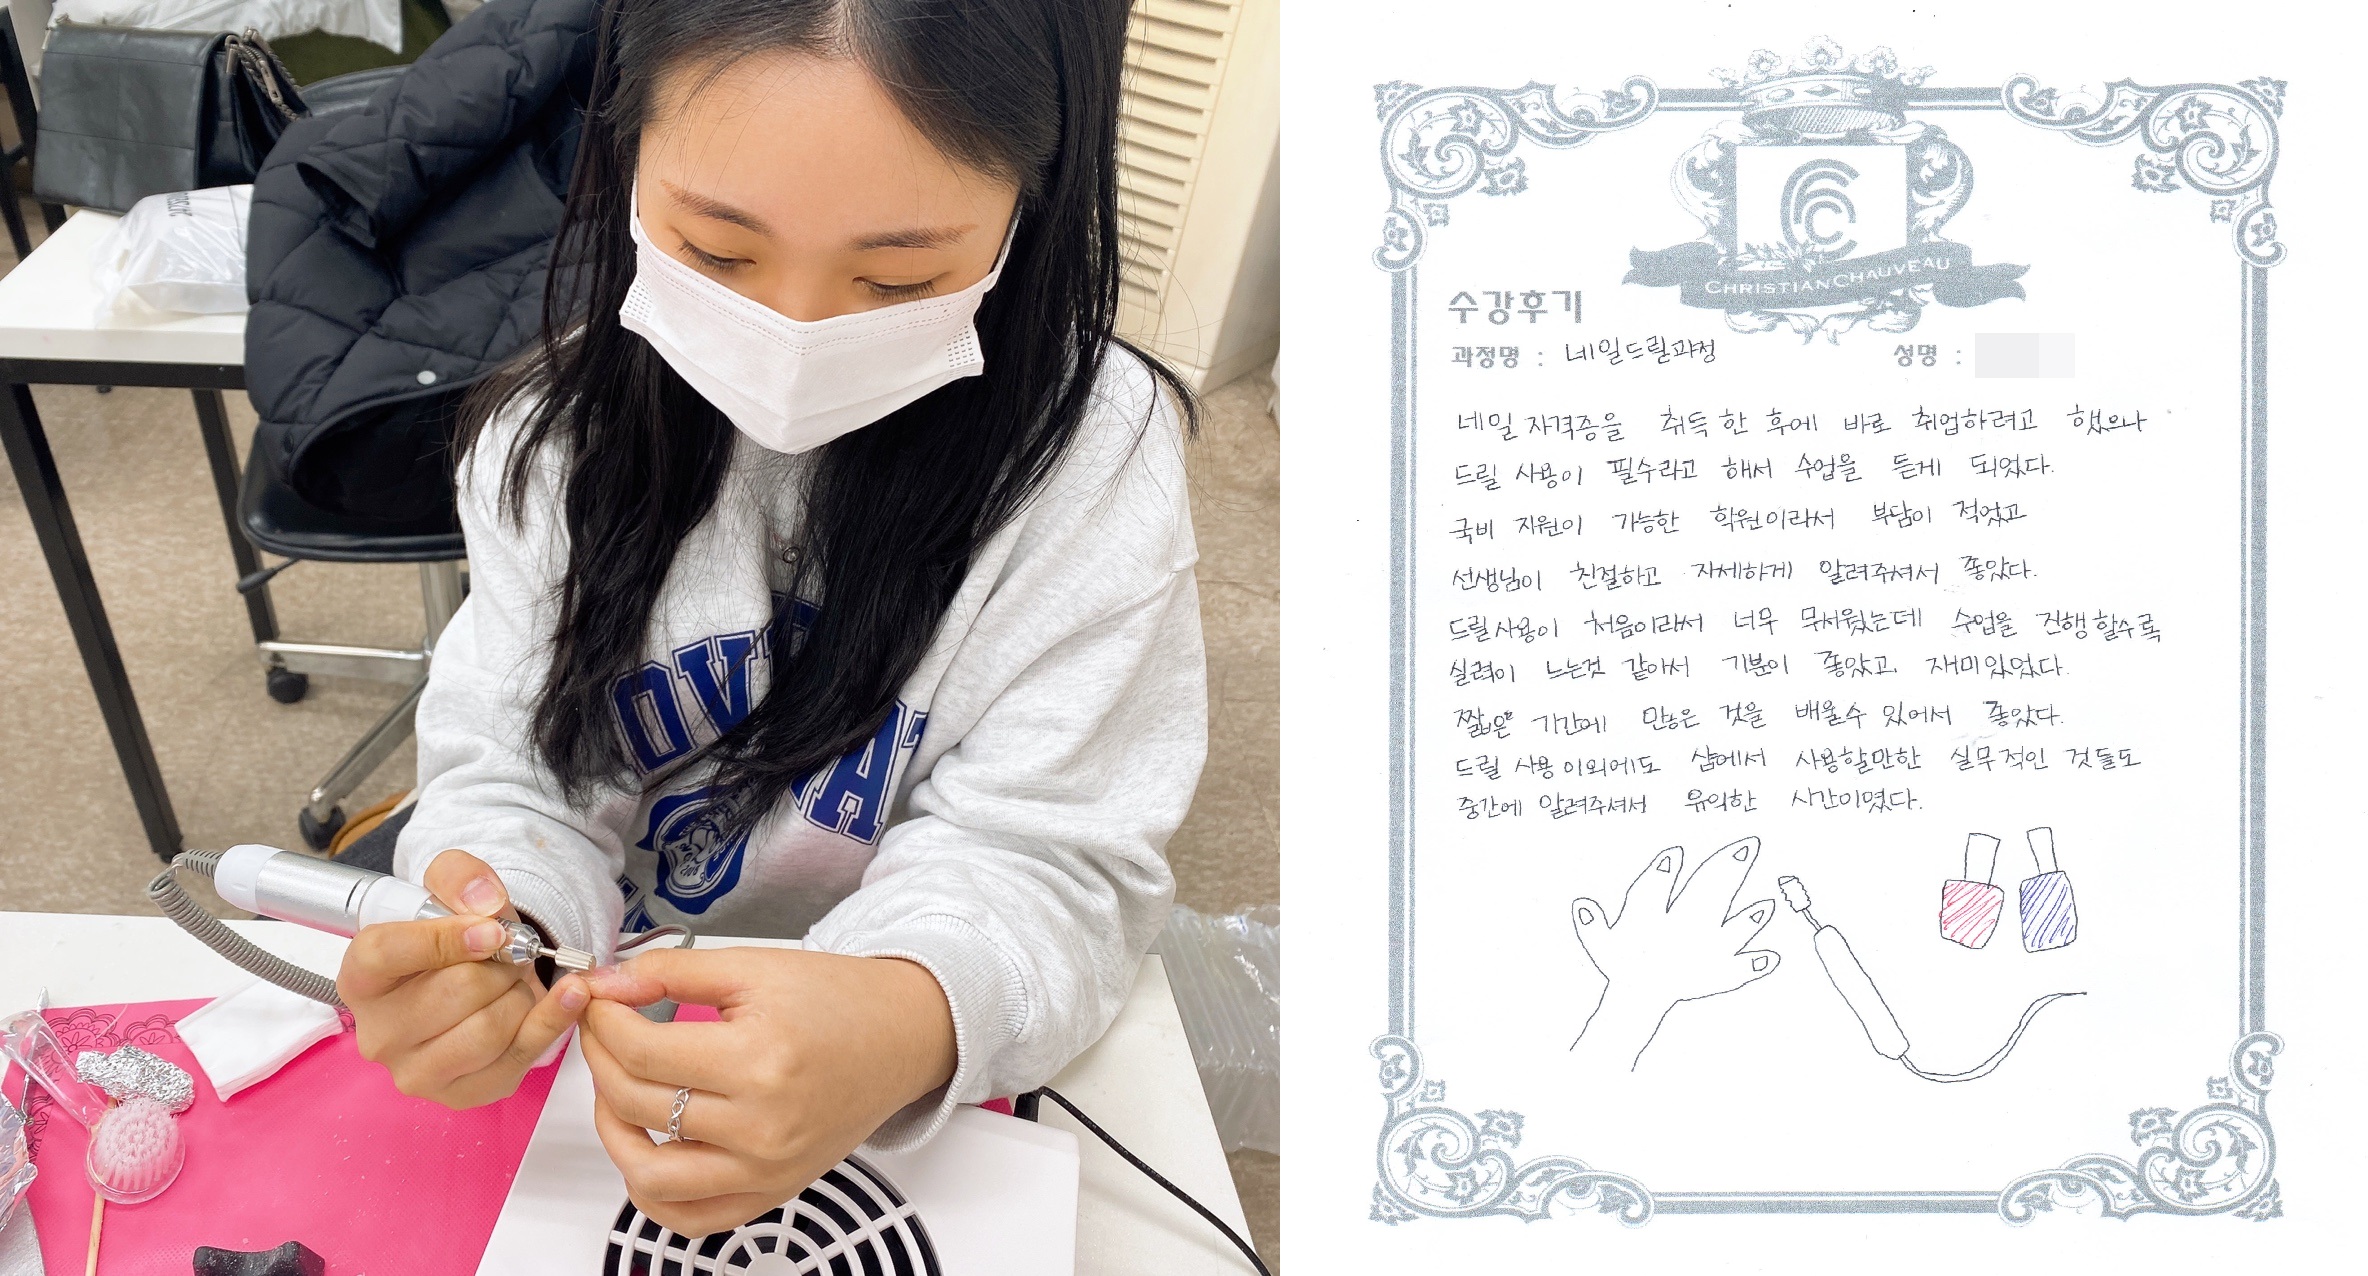 CHRISTIANCHAUVEAU
수강후기
과정명 : 네일드릴과정 성명 :
네일 자격증을 취득한 후에 바로 취업하려고 했으나
드릴 사용이 필수라고 해서 수업을 듣게 되었다.
국비 지원이 가능한 학원이라서 부담이 적었고
선생님이 친절하고 자세하게 알려주셔서 좋았다.
드릴사용이 처음이라서 너무 무서웠는데 수업을 진행할수록
실력이 느는것 같아서 기분이 좋았고 재미있었다.
짧은 기간에 많은 것을 배울수 있어서 좋았다.
드릴 사용 이외에도 샵에서 사용할만한 실무적인 것들도
중간에 알려주셔서 유익한 시간이였다.